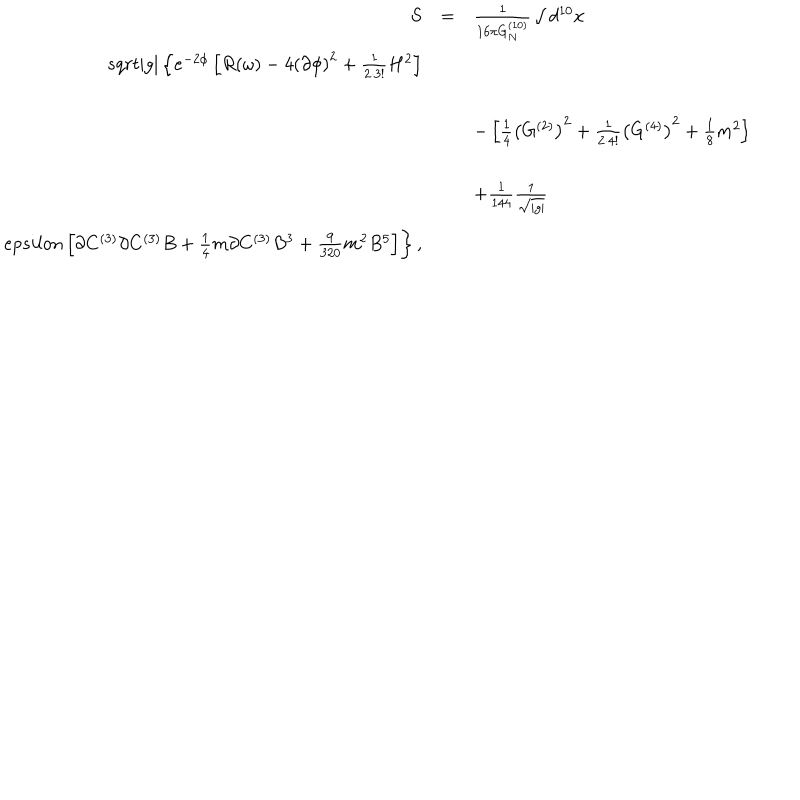 S = \frac{1}{16\pi G_N^{(10)}} \int d^{10}x
sqrt|g| \left\{ e^{-2\phi} \left[ R(\omega) - 4(\partial\phi)^2 + \frac{1}{2\cdot 3!} H^2 \right]
- \left[ \frac{1}{4} \left(G^{(2)}\right)^2 + \frac{1}{2\cdot 4!} \left(G^{(4)}\right)^2 + \frac{1}{8} m^2 \right]
+ \frac{1}{144} \frac{1}{\sqrt{|g|}}
epsilon \left[ \partial C^{(3)} \partial C^{(3)} B + \frac{1}{4} m \partial C^{(3)} B^3 + \frac{9}{320} m^2 B^5 \right] \right\} ,